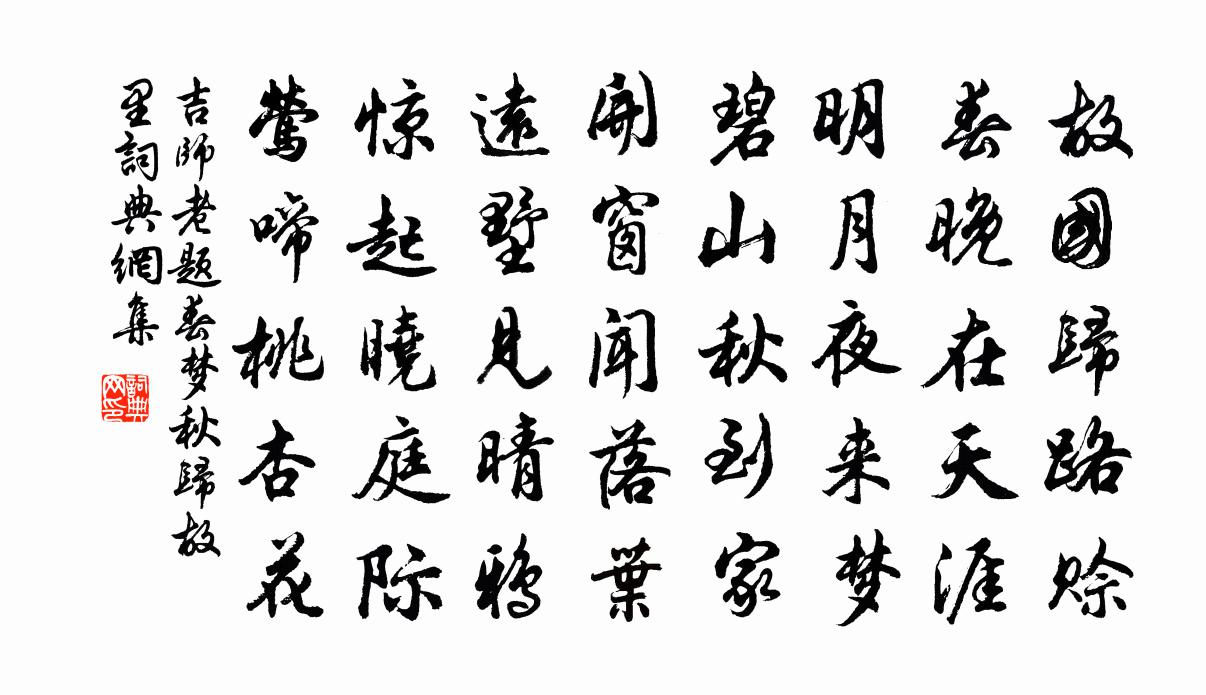 故國歸路賒
春晚在天涯
明月夜来梦
碧山秋到家
開窗聞落葉
遠墅見晴鴉
惊起曉庭际
鶯啼桃杏花
吉師老题春梦秋歸故
里詞典網集
詞典网印